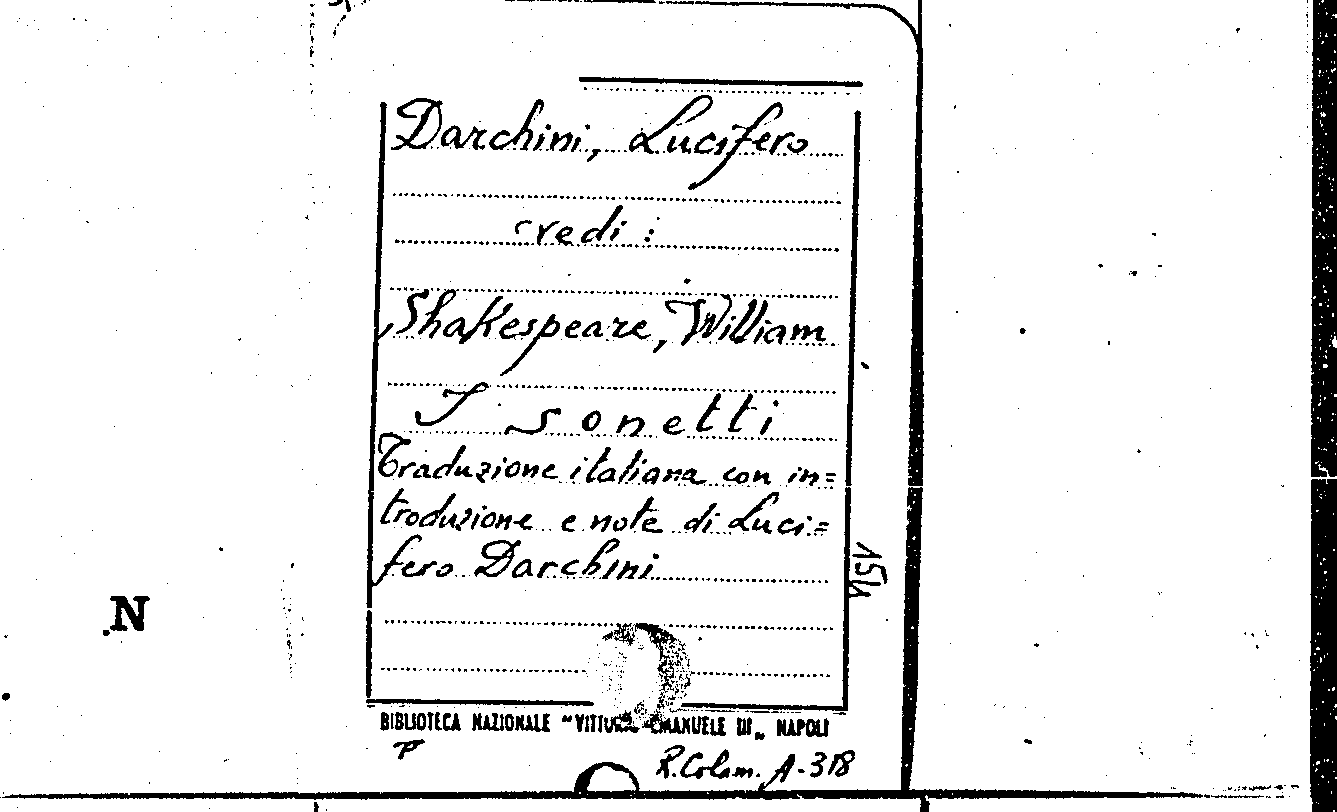 Darchini, Lucifero
vedi :
Shakespeare, William
I sonetti
Traduzione italiana con in=
troduzione e note di Luci=
fero Darchini
N
BIBLIOTECA NAZIONALE "VITTORIO EMANUELE III„ NAPOLI
R. Colam. A-318